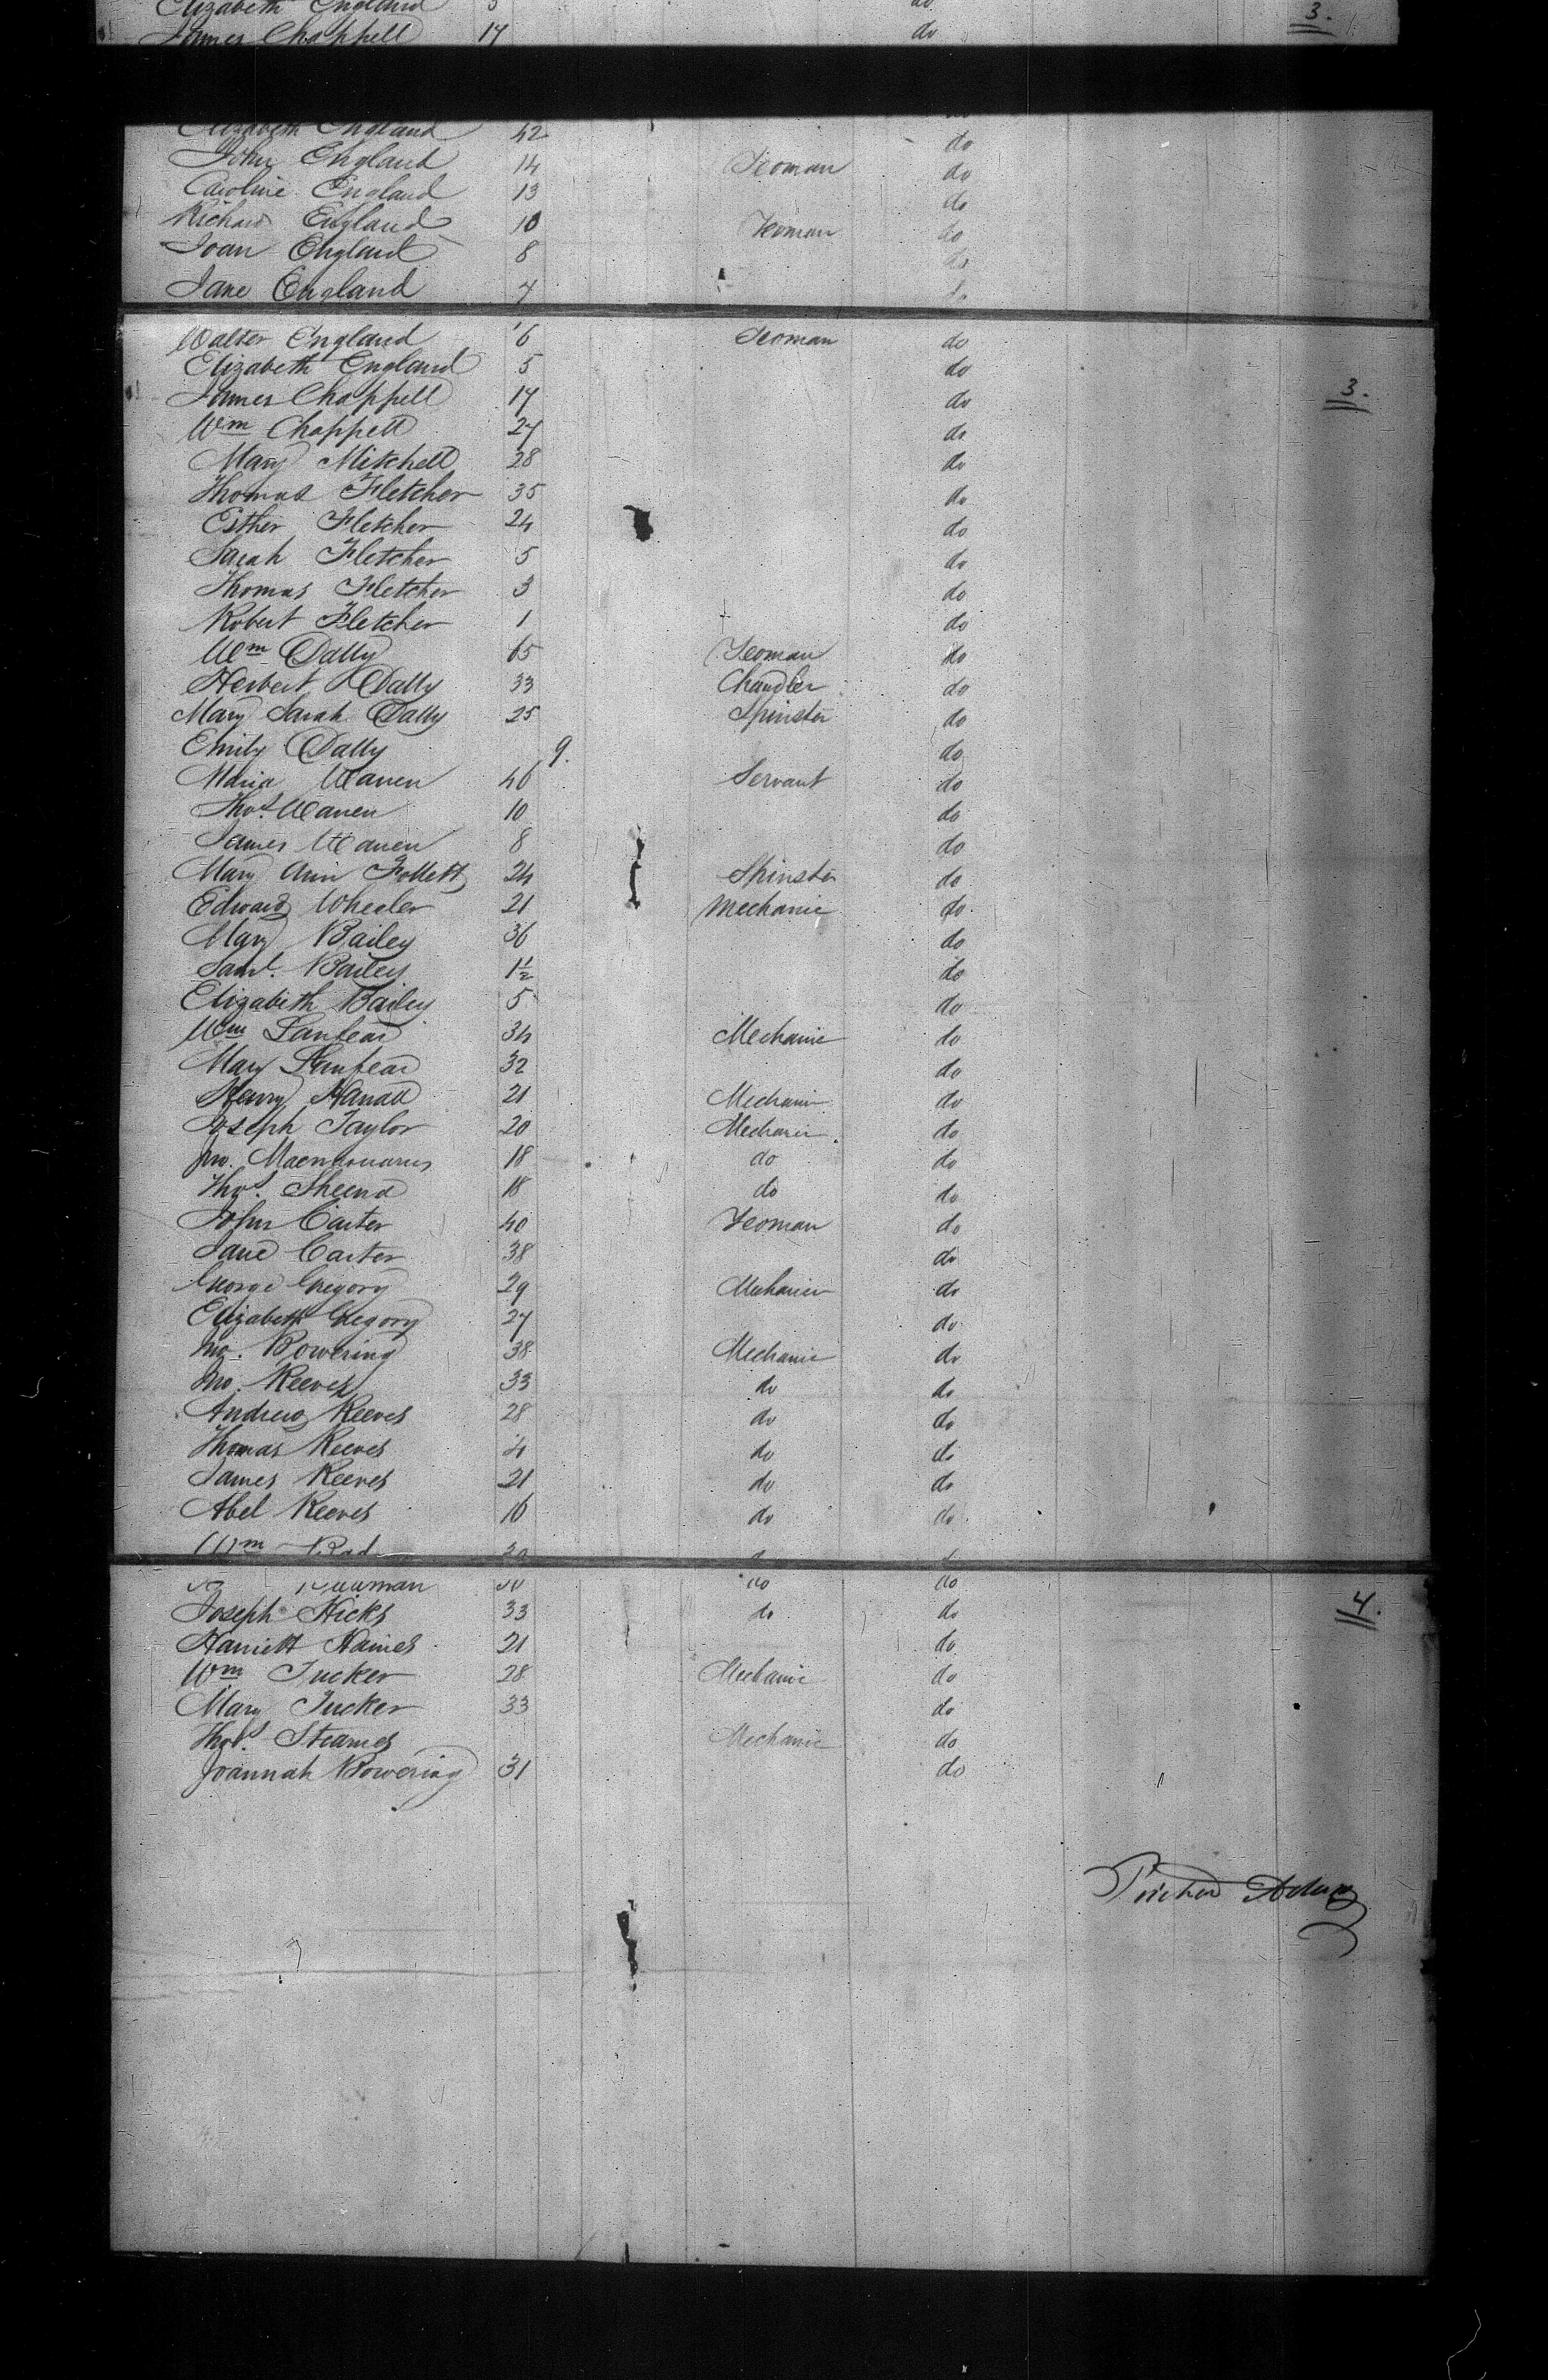 Elizabeth England 5 do
3.
James Chappell 17 do
Elizabeth England 42 do
John England 14 Yeoman do
Caroline England 13 do
Richard England 10 Yeoman do
Joan England 8 do
Jane England 7 do
Walter England 6 Yeoman do
Elizabeth England 5 do
3.
James Chappell 17 do
Wm Chappell 27 do
Mary Mitchell 28 do
Thomas Fletcher 35 do
Esther Fletcher 24 do
Sarah Fletcher 5 do
Thomas Fletcher 3 do
Robert Fletcher 1 do
Wm Dally 65 Yeoman do
Herbert Dally 33 Chandler do
Mary Sarah Dally 25 Spinster do
Emily Dally 9. do
Maria Warren 46 Servant do
Thos. Warren 10 do
James Warren 8 do
Mary Ann Follett 24 Spinster do
Edward Wheeler 21 Mechanic do
Mary Bailey 36 do
Saml. Bailey 1½ do
Elizabeth Bailey 5 do
Wm Lanfear 34 Mechanic do
Mary Lanfear 32 do
Henry 21 Mechanic do
Joseph Taylor 20 Mechanic do
Jno. 18 do do
Thos. 18 do do
John Carter 40 Yeoman do
Jane Carter 38 do
George Gregory 29 Mechanic do
Elizabeth Gregory 27 do
Jno. Bowering 38 Mechanic do
Jno. Reeves 33 do do
Andrew Reeves 28 do do
Thomas Reeves do do
James Reeves 21 do do
Abel Reeves 16 do do
Wm
do do
Joseph Hicks 33 do do
4.
Harriett Haines 21 do
Wm Tucker 28 Mechanic do
Mary Tucker 33 do
Thos. Mechanic do
Joannah Bowering 31 do